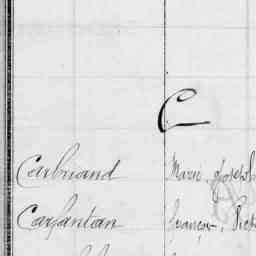 C
Carbriand Marie, Joseph
Carfantan François, Pierre